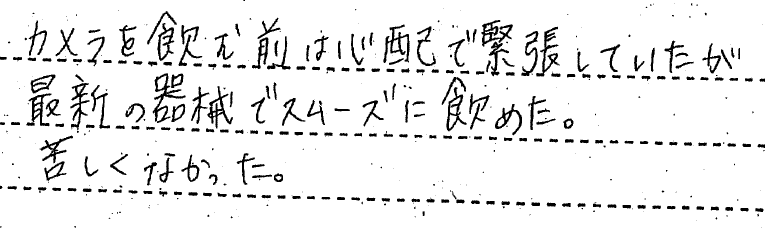 カメラを飲む前は心配で緊張していたが
最新の器械でスムーズに飲めた。
苦しくなかった。